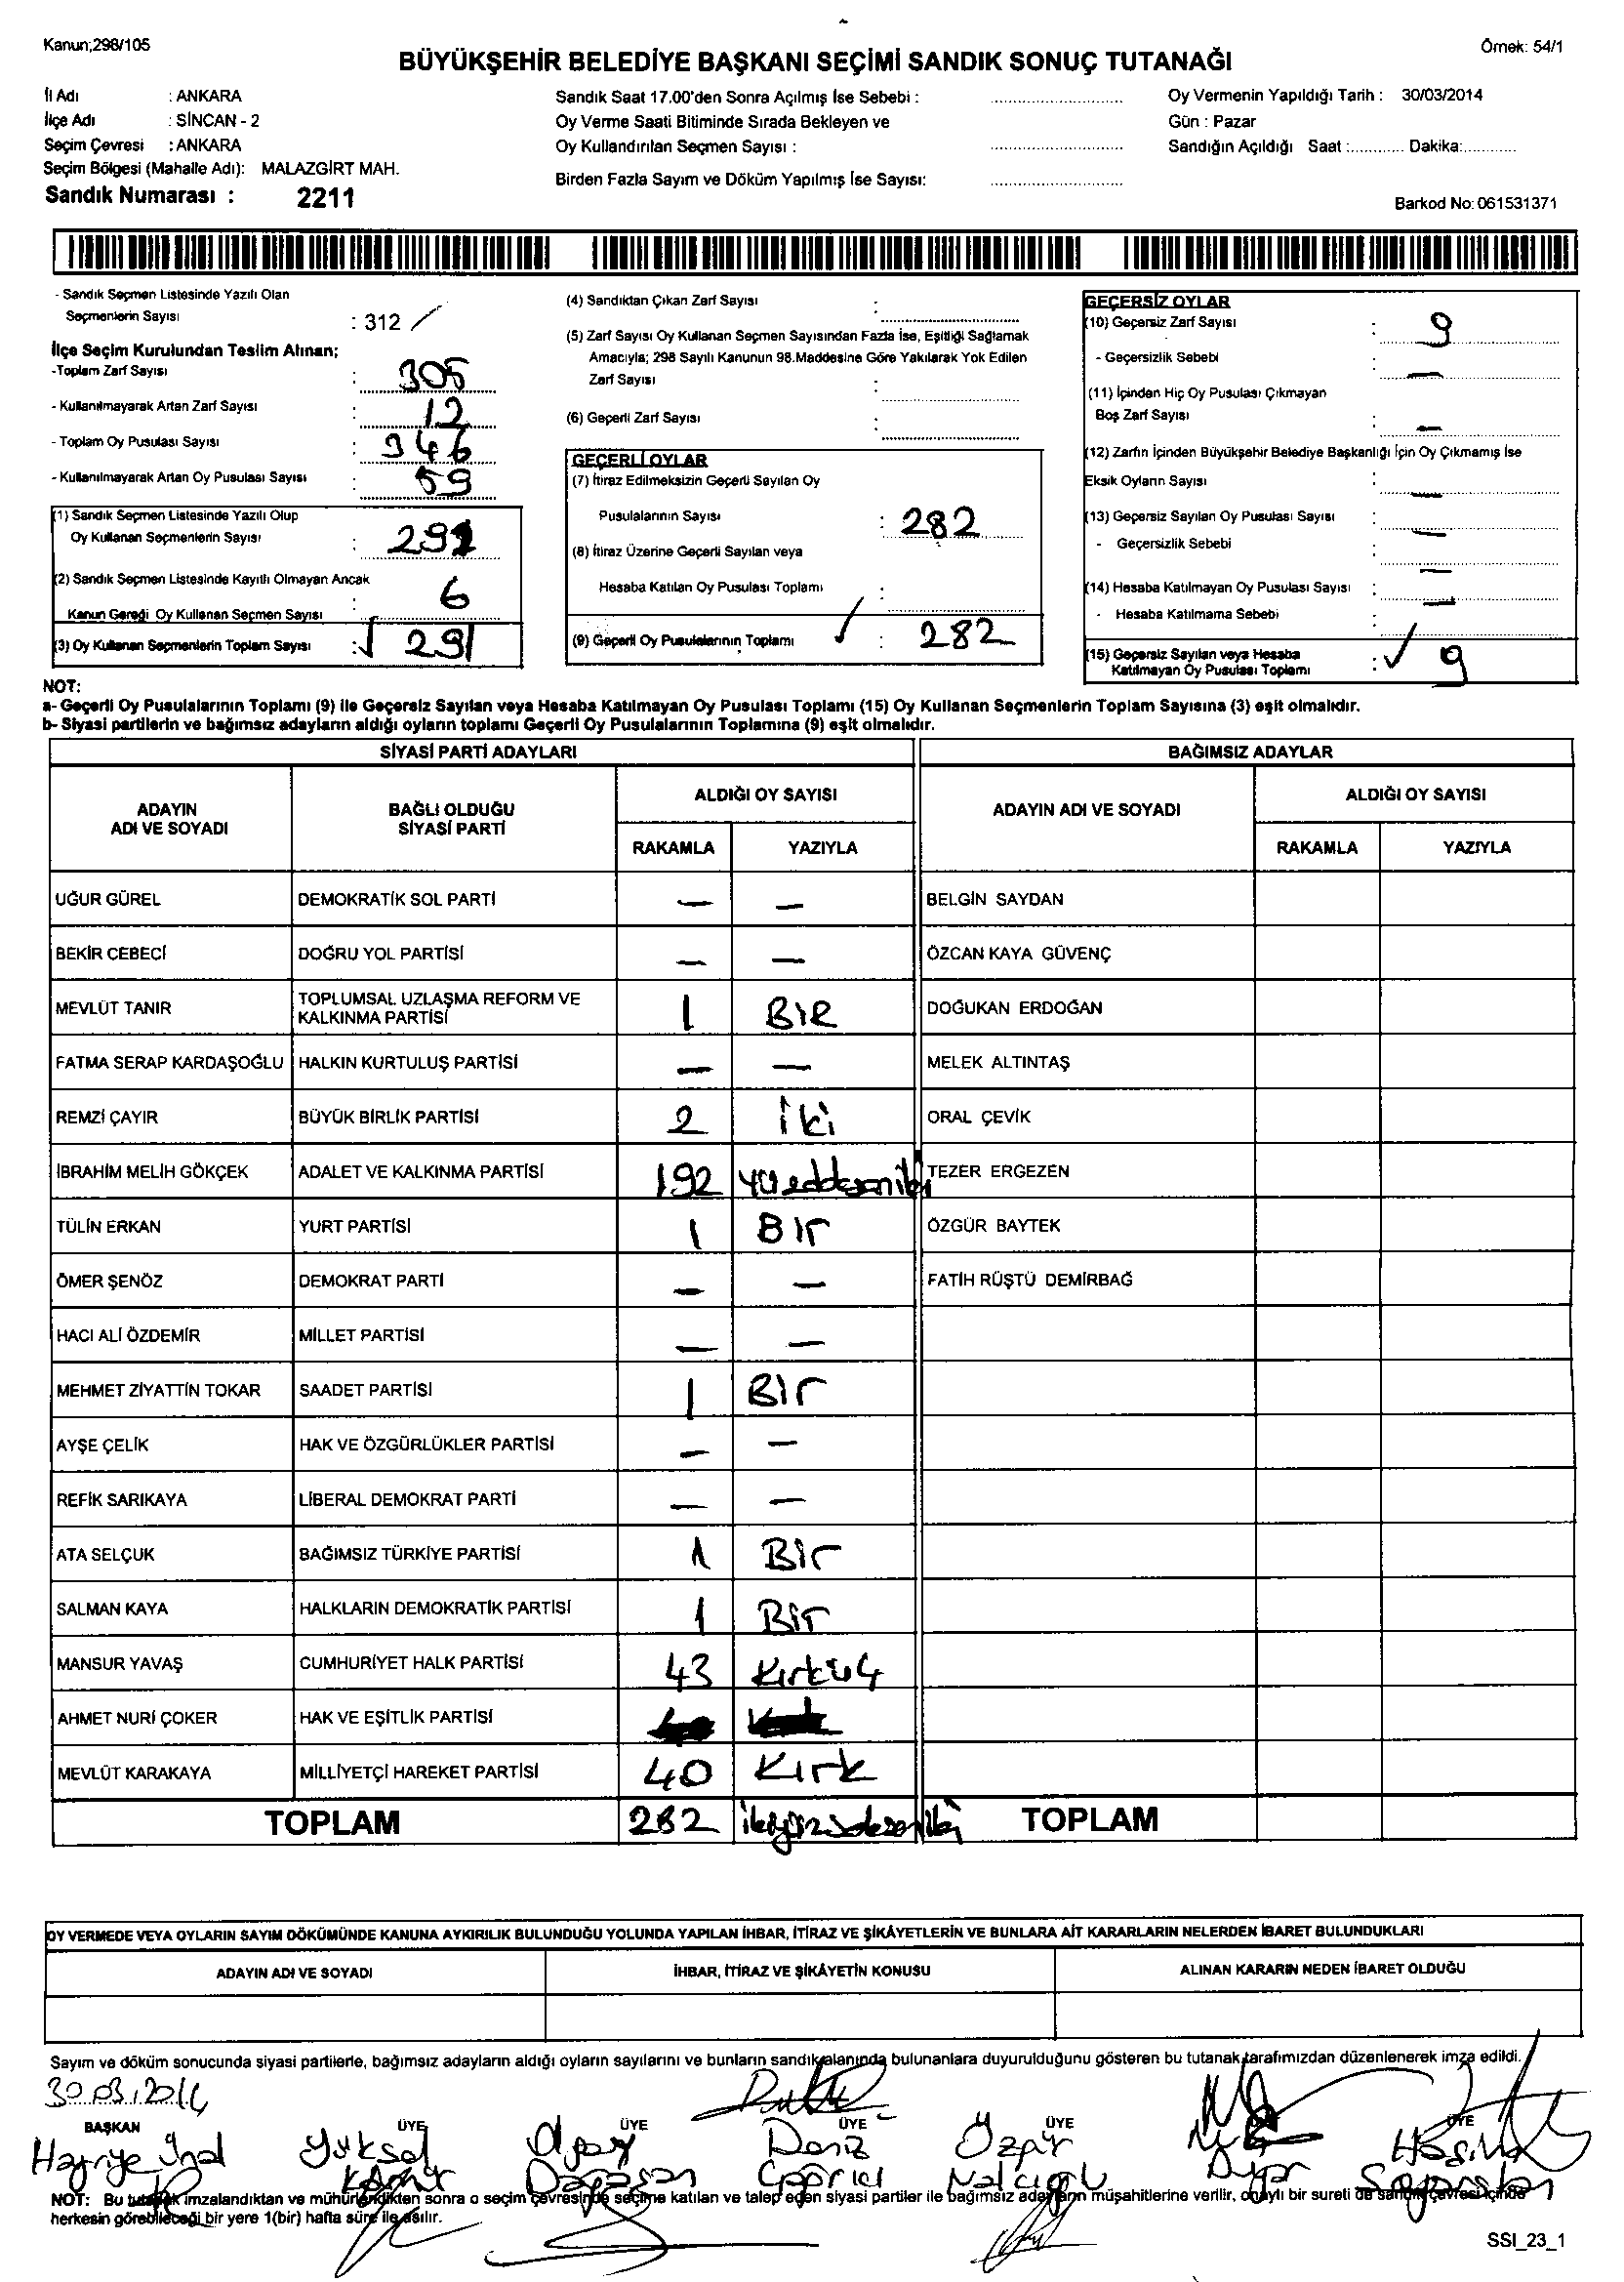 Kanun;298/105
Örnek: 54/1
BÜYÜKŞEHİR BELEDİYE BAŞKANI SEÇİMİ SANDIK SONUÇ TUTANAĞI
İl Adı : ANKARA
İlçe Adı : SİNCAN - 2
Seçim Çevresi : ANKARA
Seçim Bölgesi (Mahalle Adı): MALAZGİRT MAH.
Sandık Numarası : 2211
Sandık Saat 17.00'den Sonra Açılmış İse Sebebi :
Oy Verme Saati Bitiminde Sırada Bekleyen ve
Oy Kullandırılan Seçmen Sayısı :
Birden Fazla Sayım ve Döküm Yapılmış İse Sayısı:
Oy Vermenin Yapıldığı Tarih : 30/03/2014
Gün : Pazar
Sandığın Açıldığı Saat :............ Dakika:............
Barkod No: 061531371
- Sandık Seçmen Listesinde Yazılı Olan
Seçmenlerin Sayısı : 312
İlçe Seçim Kurulundan Teslim Alınan;
-Toplam Zarf Sayısı : 305
- Kullanılmayarak Artan Zarf Sayısı : 12
- Toplam Oy Pusulası Sayısı : 346
- Kullanılmayarak Artan Oy Pusulası Sayısı : 59
(1) Sandık Seçmen Listesinde Yazılı Olup
Oy Kullanan Seçmenlerin Sayısı :
(2) Sandık Seçmen Listesinde Kayıtlı Olmayan Ancak
Kanun Gereği Oy Kullanan Seçmen Sayısı : 6
(3) Oy Kullanan Seçmenlerin Toplam Sayısı : 291
(4) Sandıktan Çıkan Zarf Sayısı :
(5) Zarf Sayısı Oy Kullanan Seçmen Sayısından Fazla İse, Eşitliği Sağlamak
Amacıyla; 298 Sayılı Kanunun 98.Maddesine Göre Yakılarak Yok Edilen
Zarf Sayısı :
(6) Geçerli Zarf Sayısı :
GEÇERLİ OYLAR
(7) İtiraz Edilmeksizin Geçerli Sayılan Oy
Pusulalarının Sayısı : 282
(8) İtiraz Üzerine Geçerli Sayılan veya
Hesaba Katılan Oy Pusulası Toplamı :
(9) Geçerli Oy Pusulalarının Toplamı : 282
GEÇERSİZ OYLAR
(10) Geçersiz Zarf Sayısı : 9
- Geçersizlik Sebebi : —
(11) İçinden Hiç Oy Pusulası Çıkmayan
Boş Zarf Sayısı : —
(12) Zarfın İçinden Büyükşehir Belediye Başkanlığı İçin Oy Çıkmamış İse
Eksik Oyların Sayısı : —
(13) Geçersiz Sayılan Oy Pusulası Sayısı : —
- Geçersizlik Sebebi : —
(14) Hesaba Katılmayan Oy Pusulası Sayısı : —
- Hesaba Katılmama Sebebi :
(15) Geçersiz Sayılan veya Hesaba
Katılmayan Oy Pusulası Toplamı : 9
NOT:
a- Geçerli Oy Pusulalarının Toplamı (9) ile Geçersiz Sayılan veya Hesaba Katılmayan Oy Pusulası Toplamı (15) Oy Kullanan Seçmenlerin Toplam Sayısına (3) eşit olmalıdır.
b- Siyasi partilerin ve bağımsız adayların aldığı oyların toplamı Geçerli Oy Pusulalarının Toplamına (9) eşit olmalıdır.
SİYASİ PARTİ ADAYLARI BAĞIMSIZ ADAYLAR
ADAYIN ADI VE SOYADI BAĞLI OLDUĞU SİYASİ PARTİ ALDIĞI OY SAYISI ADAYIN ADI VE SOYADI ALDIĞI OY SAYISI
RAKAMLA YAZIYLA RAKAMLA YAZIYLA
UĞUR GÜREL DEMOKRATİK SOL PARTİ — — BELGİN SAYDAN
BEKİR CEBECİ DOĞRU YOL PARTİSİ — — ÖZCAN KAYA GÜVENÇ
MEVLÜT TANIR TOPLUMSAL UZLAŞMA REFORM VE KALKINMA PARTİSİ 1 BİR DOĞUKAN ERDOĞAN
FATMA SERAP KARDAŞOĞLU HALKIN KURTULUŞ PARTİSİ — — MELEK ALTINTAŞ
REMZİ ÇAYIR BÜYÜK BİRLİK PARTİSİ 2 İki ORAL ÇEVİK
İBRAHİM MELİH GÖKÇEK ADALET VE KALKINMA PARTİSİ 192 TEZER ERGEZEN
TÜLİN ERKAN YURT PARTİSİ 1 Bir ÖZGÜR BAYTEK
ÖMER ŞENÖZ DEMOKRAT PARTİ — — FATİH RÜŞTÜ DEMİRBAĞ
HACI ALİ ÖZDEMİR MİLLET PARTİSİ — —
MEHMET ZİYATTİN TOKAR SAADET PARTİSİ 1 Bir
AYŞE ÇELİK HAK VE ÖZGÜRLÜKLER PARTİSİ — —
REFİK SARIKAYA LİBERAL DEMOKRAT PARTİ — —
ATA SELÇUK BAĞIMSIZ TÜRKİYE PARTİSİ 1 Bir
SALMAN KAYA HALKLARIN DEMOKRATİK PARTİSİ 1 Bir
MANSUR YAVAŞ CUMHURİYET HALK PARTİSİ 43 Kırküç
AHMET NURİ ÇOKER HAK VE EŞİTLİK PARTİSİ
MEVLÜT KARAKAYA MİLLİYETÇİ HAREKET PARTİSİ 40 Kırk
TOPLAM 282 TOPLAM
OY VERMEDE VEYA OYLARIN SAYIM DÖKÜMÜNDE KANUNA AYKIRILIK BULUNDUĞU YOLUNDA YAPILAN İHBAR, İTİRAZ VE ŞİKÂYETLERİN VE BUNLARA AİT KARARLARIN NELERDEN İBARET BULUNDUKLARI
ADAYIN ADI VE SOYADI İHBAR, İTİRAZ VE ŞİKÂYETİN KONUSU ALINAN KARARIN NEDEN İBARET OLDUĞU
Sayım ve döküm sonucunda siyasi partilerle, bağımsız adayların aldığı oyların sayılarını ve bunların sandık alanında bulunanlara duyurulduğunu gösteren bu tutanak tarafımızdan düzenlenerek imza edildi.
30.03.2014
BAŞKAN ÜYE ÜYE ÜYE ÜYE ÜYE
Yüksel Deniz
NOT: Bu tutanak imzalandıktan ve mühürlendikten sonra o seçim çevresinde seçime katılan ve talep eden siyasi partiler ile bağımsız adayların müşahitlerine verilir, onaylı bir sureti de sandık çevresi içinde
herkesin görebileceği bir yere 1(bir) hafta süre ile asılır.
SSI_23_1